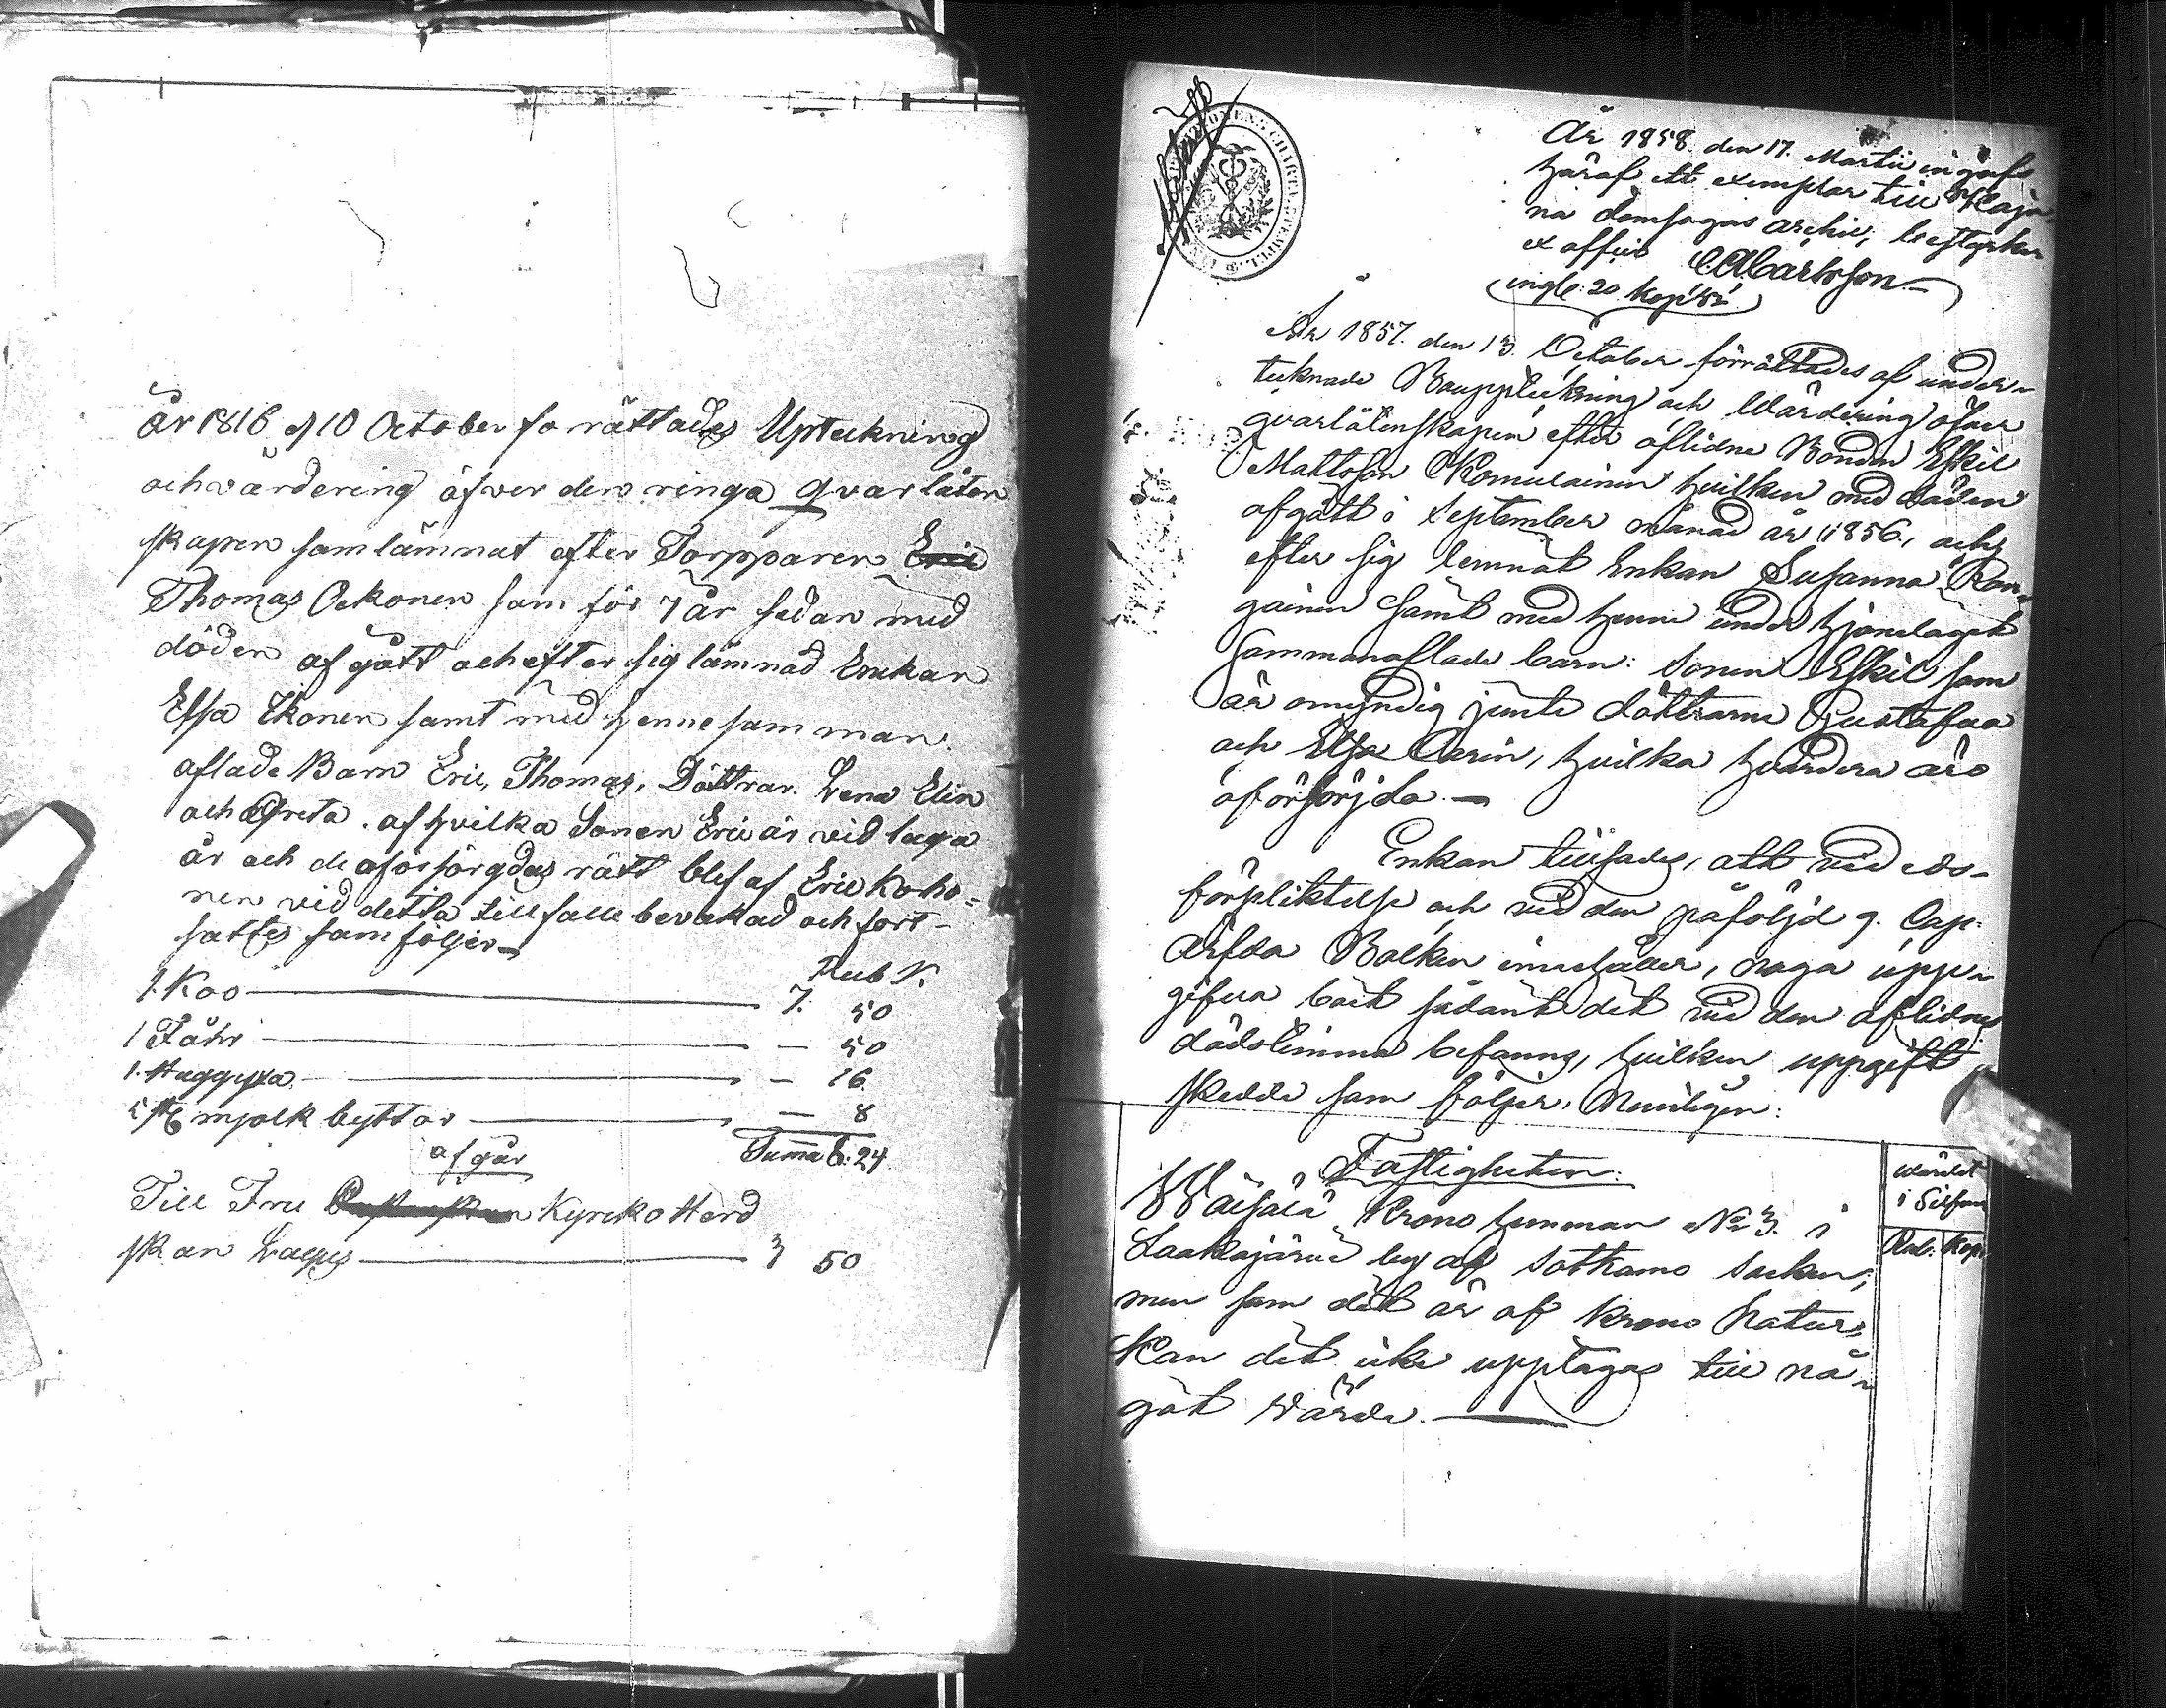 År 1816 d 10 October forrättades Upteckning
och värdering öfver den ringa qvarläten
skapen som lämnat efter Torpparen Eric
Thomas Ockonen som för 7 år sedan med
döden afgått och efter sig lämnad Enkan
Elsa Ikonen samt med henne samman
aflade Barn Eric, Thomas, Döttrar Lena Elin
och Greta. af hvilka Sonen Eric är vid laga
år och de oförsörgdas rätt blef af Eric Korho-
nen vid detta tillfälle bevakad och fort-
sattes som följer
Rub K.
1. Koo 7. 50
1 Fåhr — 50
1. Huggyxa — 16
5 st mjolk byttor — 8
Summa 8. 24
afgår
Till Fru Kyrko Herd
skan Lagus 3 50
År 1858. den 17. Martii ingafs
häraf ett exemplar till Kaja-
na domsagas archiv, bestyrker
ex officio
ingl. 20 kop. sr
År 1857. den 13. October förrättades af under-
tecknade Bouppteckning och Värdering öfver
qvarlåtenskapen efter aflidne Bonden Eskil
Mattsson Romulainen hvilken med döden
afgått i September månad år 1856, och
efter sig lemnat Enkan Susanna Kan-
gainen samt med henne under hjonelaget
sammanaflade barn: Sonen Eskil som
är omyndig jemte döttrarne Gustafva
och Elsa Carin, hvilka hvardera äro
oförsörjda. —
Enkan tillsades, att vid eds-
förpliktelse och vid den påföljd 9. Cap:
Ärfda Balken innehåller, noga upp-
gifva boet sådant det vid den aflidnes
dödstimma befanns, hvilken uppgift
skedde som följer, Nemligen:
Fastigheten:
Värdet
i Silfver
Rub: Kop:
Väisälä Krono hemman No 3. i
Laakajärvi by af Sotkamo Socken,
men som det är af Krono Natur,
Kan det icke upptagas till nå-
got värde. —